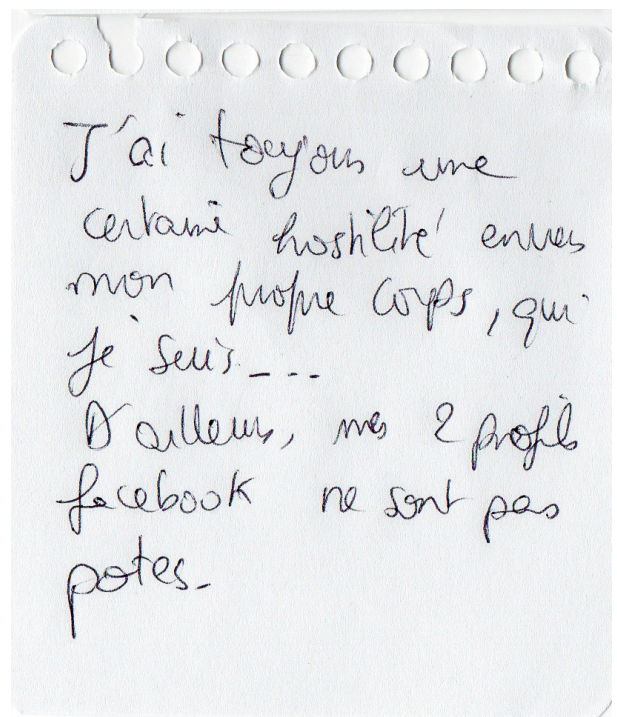 J'ai toujours une
certaine hostilité envers
mon propre corps, qui
je suis _...
D'ailleurs, mes 2 profils
facebook ne sont pas
potes.